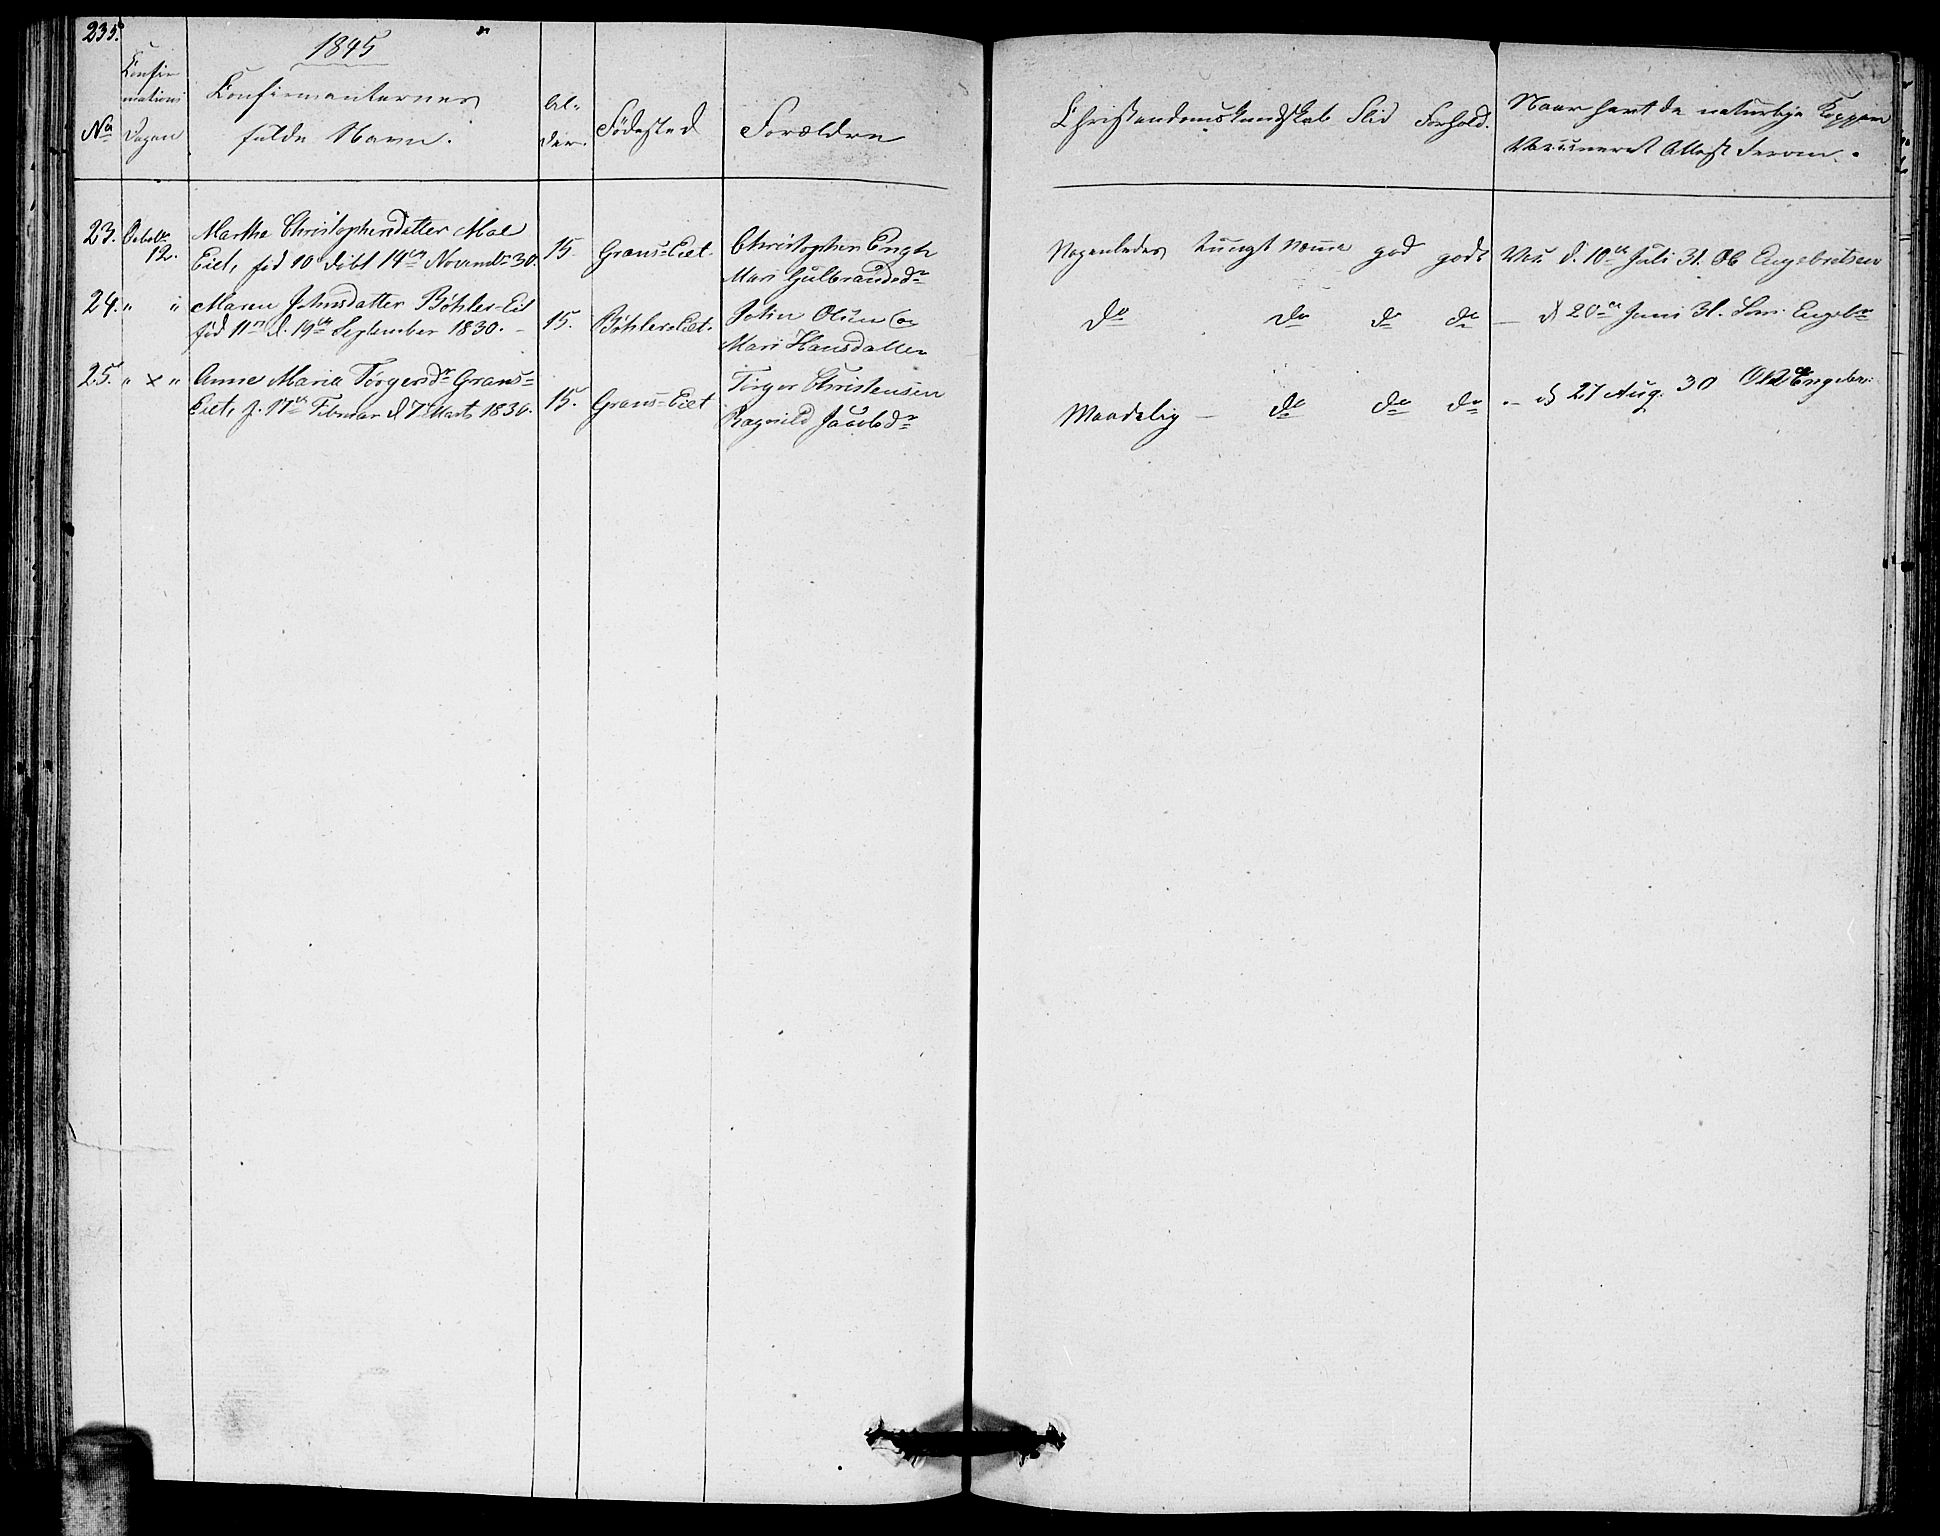 235.
1845
Confir
mations
Dagen
No
Confirmanternes
fulde Navn.
Al-
der.
Fødested
Forældre
Christendomskundskab Flid Forhold.
Naar havt de naturlige Kopper
Vaccineret Attest derom.
23. Octobr 12. Martha Christophersdatter Moe
Eiet, fød 10 døbt 14de Novembr 30. 15. Grans-Eiet. Christopher Engh
Mari Gulbrandsdr
Nogenledes tungt Nemme god godt Vac. d. 10de Juli 31. Ob Engebretsen
24. " " Maren Johnsdatter Böhler-Eit
fød 11te d. 19de September 1830. 15. Böhlers Eiet. John Olsen og
Mari Hansdatter
do do do do — d 20de Juni 31. Som Engebr
25. " × " Anne Maria Törgersdr Grans=
Eiet, f. 17de Februar d 7 Marts 1830. 15. Grans-Eiet Törger Christensen
Ragnild Jacobsdr
Maadelig — do do do — d 27 Aug. 30 Engebr: